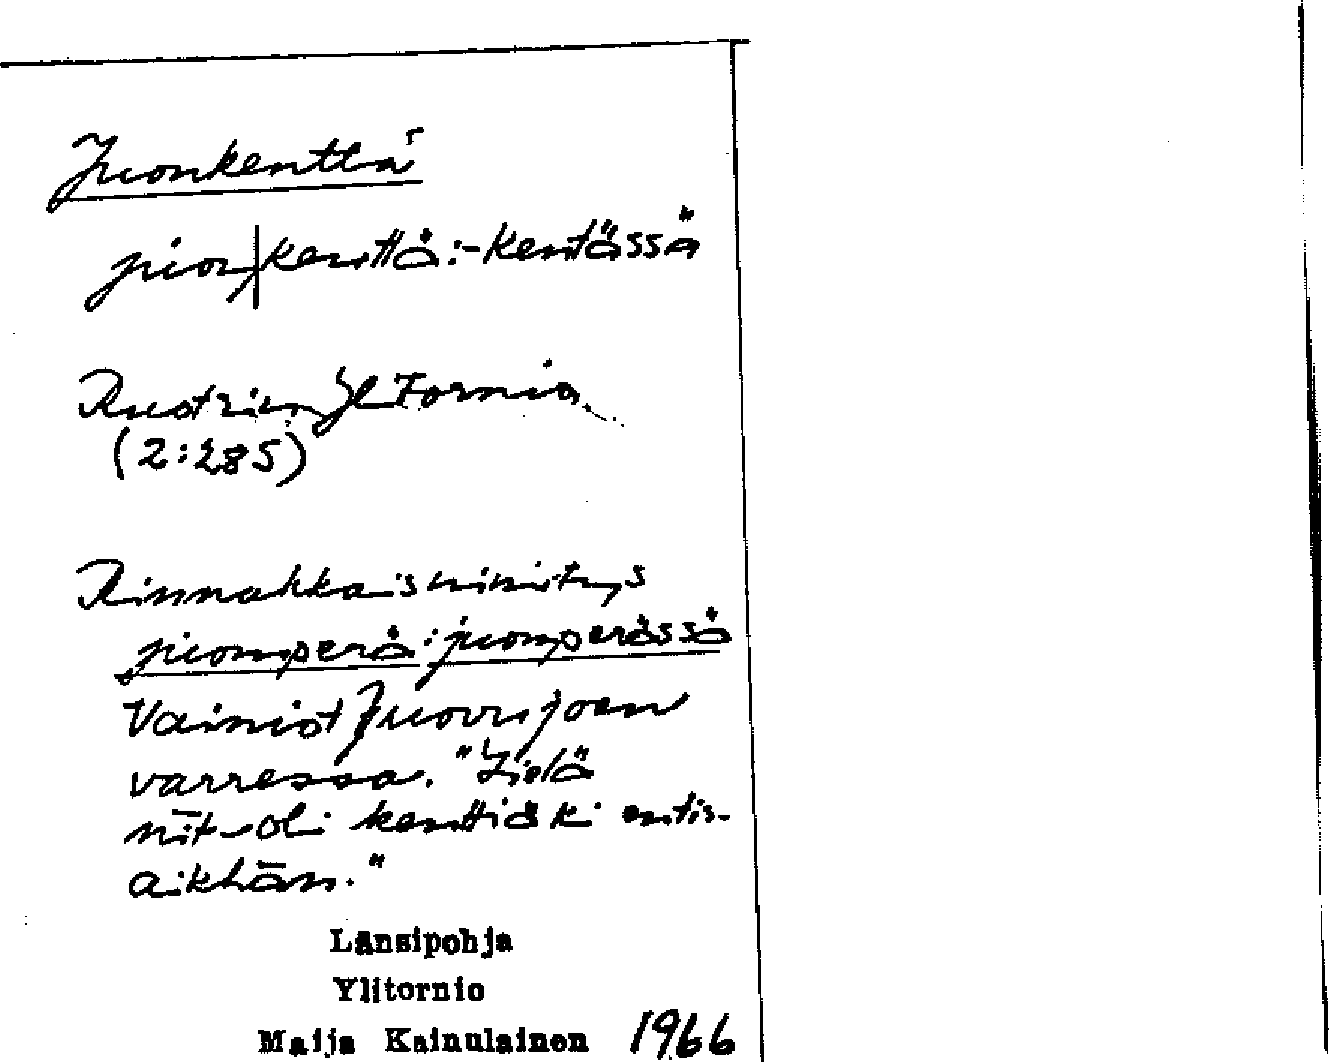 Juonkenttä
juon|kenttä:-kentässä
Ruotsin Yl Tornio
(2:285)
Rinnakkaisnimitys
juomperä: juomperässä
Vainiot Juovujoen
varressa. "Sielä
nīt-oli kenttiäki entis-
aikhān."
Länsipohja
Ylitornio
Maija Kainulainen 1966